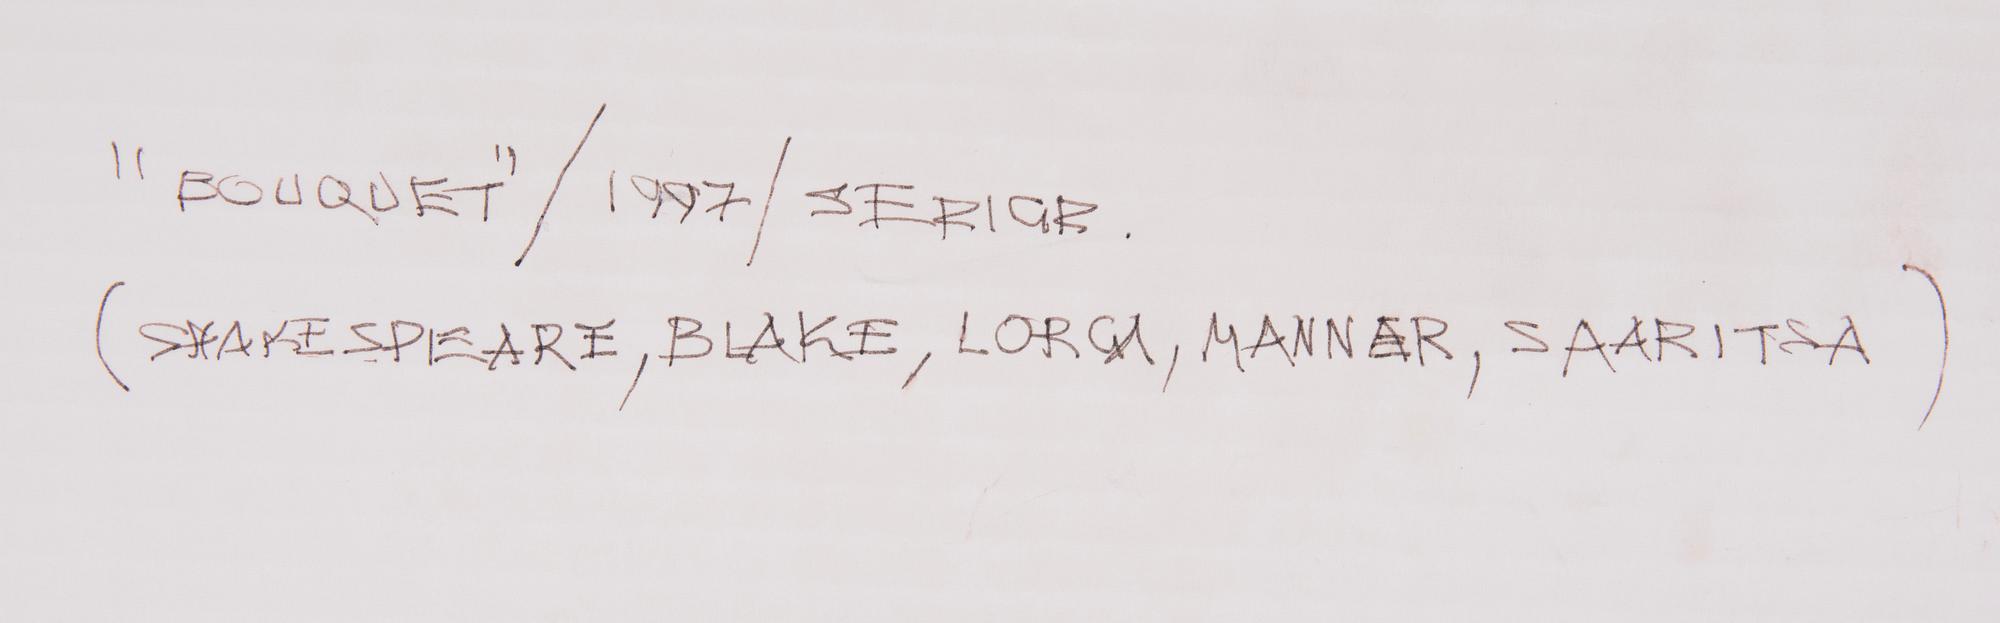 "BOUQUET"/1997/SERIGR.
(SHAKESPEARE, BLAKE, LORCA, MANNER, SAARITSA)